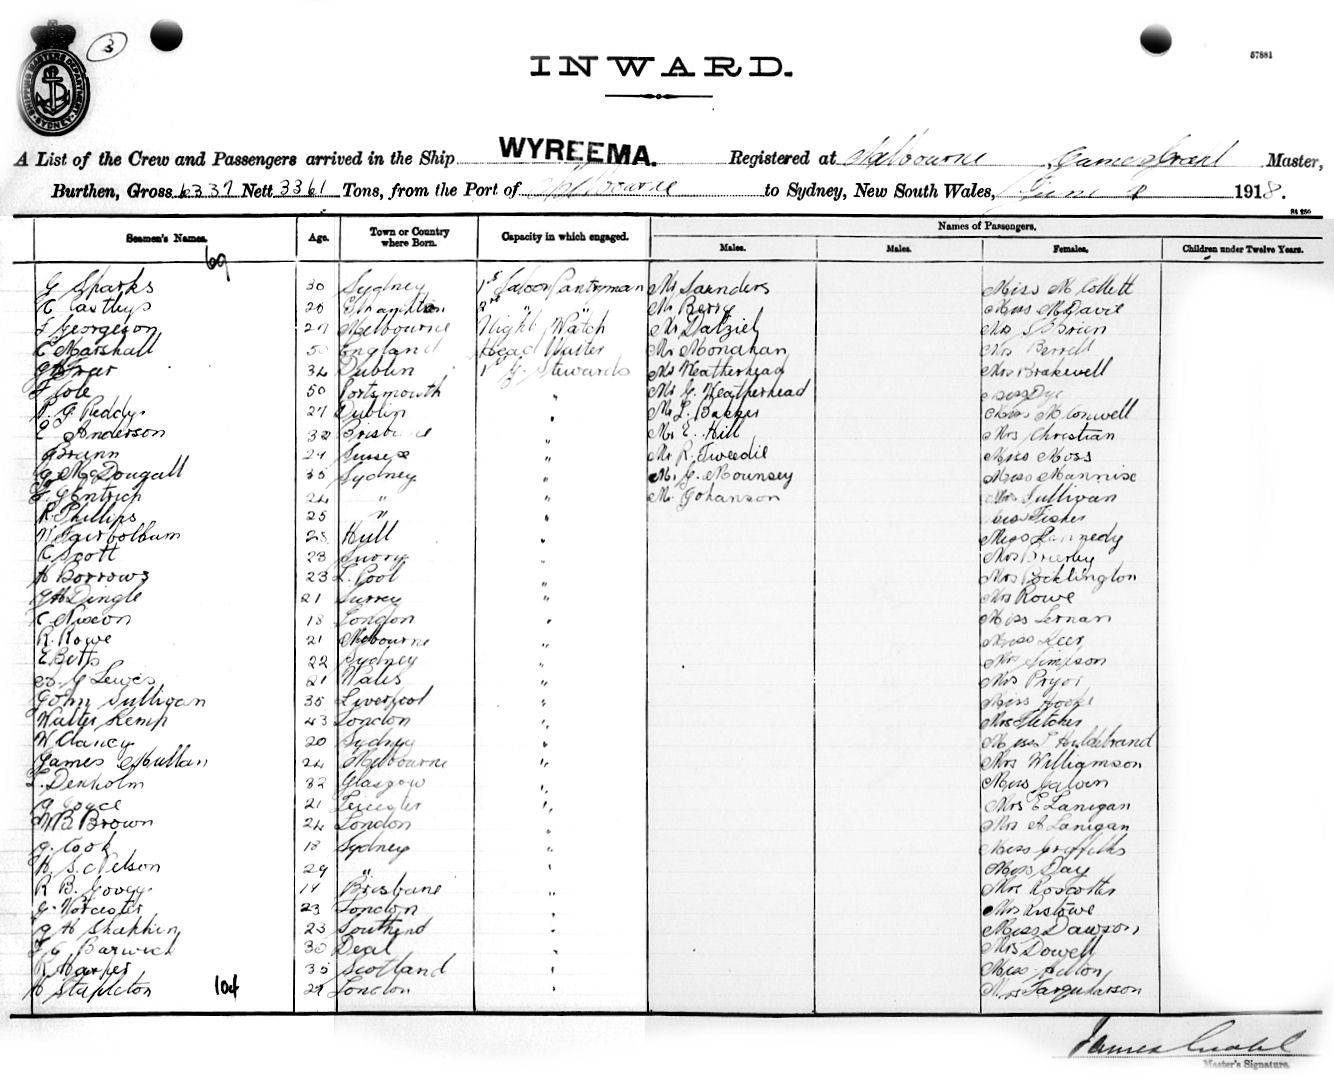 3
SHIPPING MASTERS DEPARTMENT
SYDNEY
57881
INWARD.
A List of the Crew and Passengers arrived in the Ship WYREEMA. Registered at Melbourne James Grahl Master,
Burthen, Gross 6337 Nett 3361 Tons, from the Port of Melbourne to Sydney, New South Wales, June 1918.
Seamen's Names. Age. Town or Country where Born. Capacity in which engaged. Names of Passengers.
Males. Males. Females. Children under Twelve Years.
69
G Sparks 30 Sydney 1st Saloon Pantryman Mr Saunders Miss M. Collett
28 2nd " " Mr Berry Miss
F Georgeson 27 Melbourne Night Watch Mr Dalziel Mrs O'Brien
C Marshall 50 England Head Waiter Mr Monahan Mrs Berrell
34 Dublin Stewards Mr Heatherhead Mrs Brakewell
F Cole 50 Portsmouth " Mr G. Heatherhead Dye
P. G. Reddy 27 Dublin " Mr L. Barker Miss
E Anderson 32 Brisbane " Mr E. Hill Mrs Christian
Brann 27 Sussex " Mr R. Tweedie Miss Moss
G McDougall 35 Sydney " Mr G. Mounsey Miss Mannise
F Gentrich 24 " " Mr Johanson Mrs Sullivan
R Phillips 25 " " Miss Fisher
W Fairbotham 23 Hull " Miss Kennedy
C Scott 28 " Mrs Brierley
H Borrows 23 L. Pool " Mrs Bocklington
G H Dingle 21 Surrey " Mrs Rowe
C Nixon 18 London " Miss Lernan
R. Rowe 21 Melbourne " Miss Keer
E Betts 22 Sydney " Mrs Simpson
Lewes 21 Wales " Mrs Pryor
John Sullivan 35 Liverpool " Miss Hooke
Walter Kemp 43 London " Mrs Fletcher
W Clancy 20 Sydney " Miss L Huldebrand
James Mullan 24 Melbourne " Mrs Williamson
L. Denholm 32 Glasgow " Miss Galvin
G Joyce 21 Leicester " Mrs E Lanigan
W B. Brown 24 London " Mrs A Lanigan
G. Cook 18 Sydney " Miss Griffiths
H. S. Nelson 29 " " Miss Day
R B. Govey 17 Brisbane " Mrs Roscotter
G Worcester 23 London " Mrs Ristowe
G H 23 Southend " Miss Dawson
F C Barwick 30 Deal " Mrs Dowell
R Harper 35 Scotland " Miss Hilton
H Stapleton 104 27 London " Mrs Farquharson
James Grahl
Master's Signature.